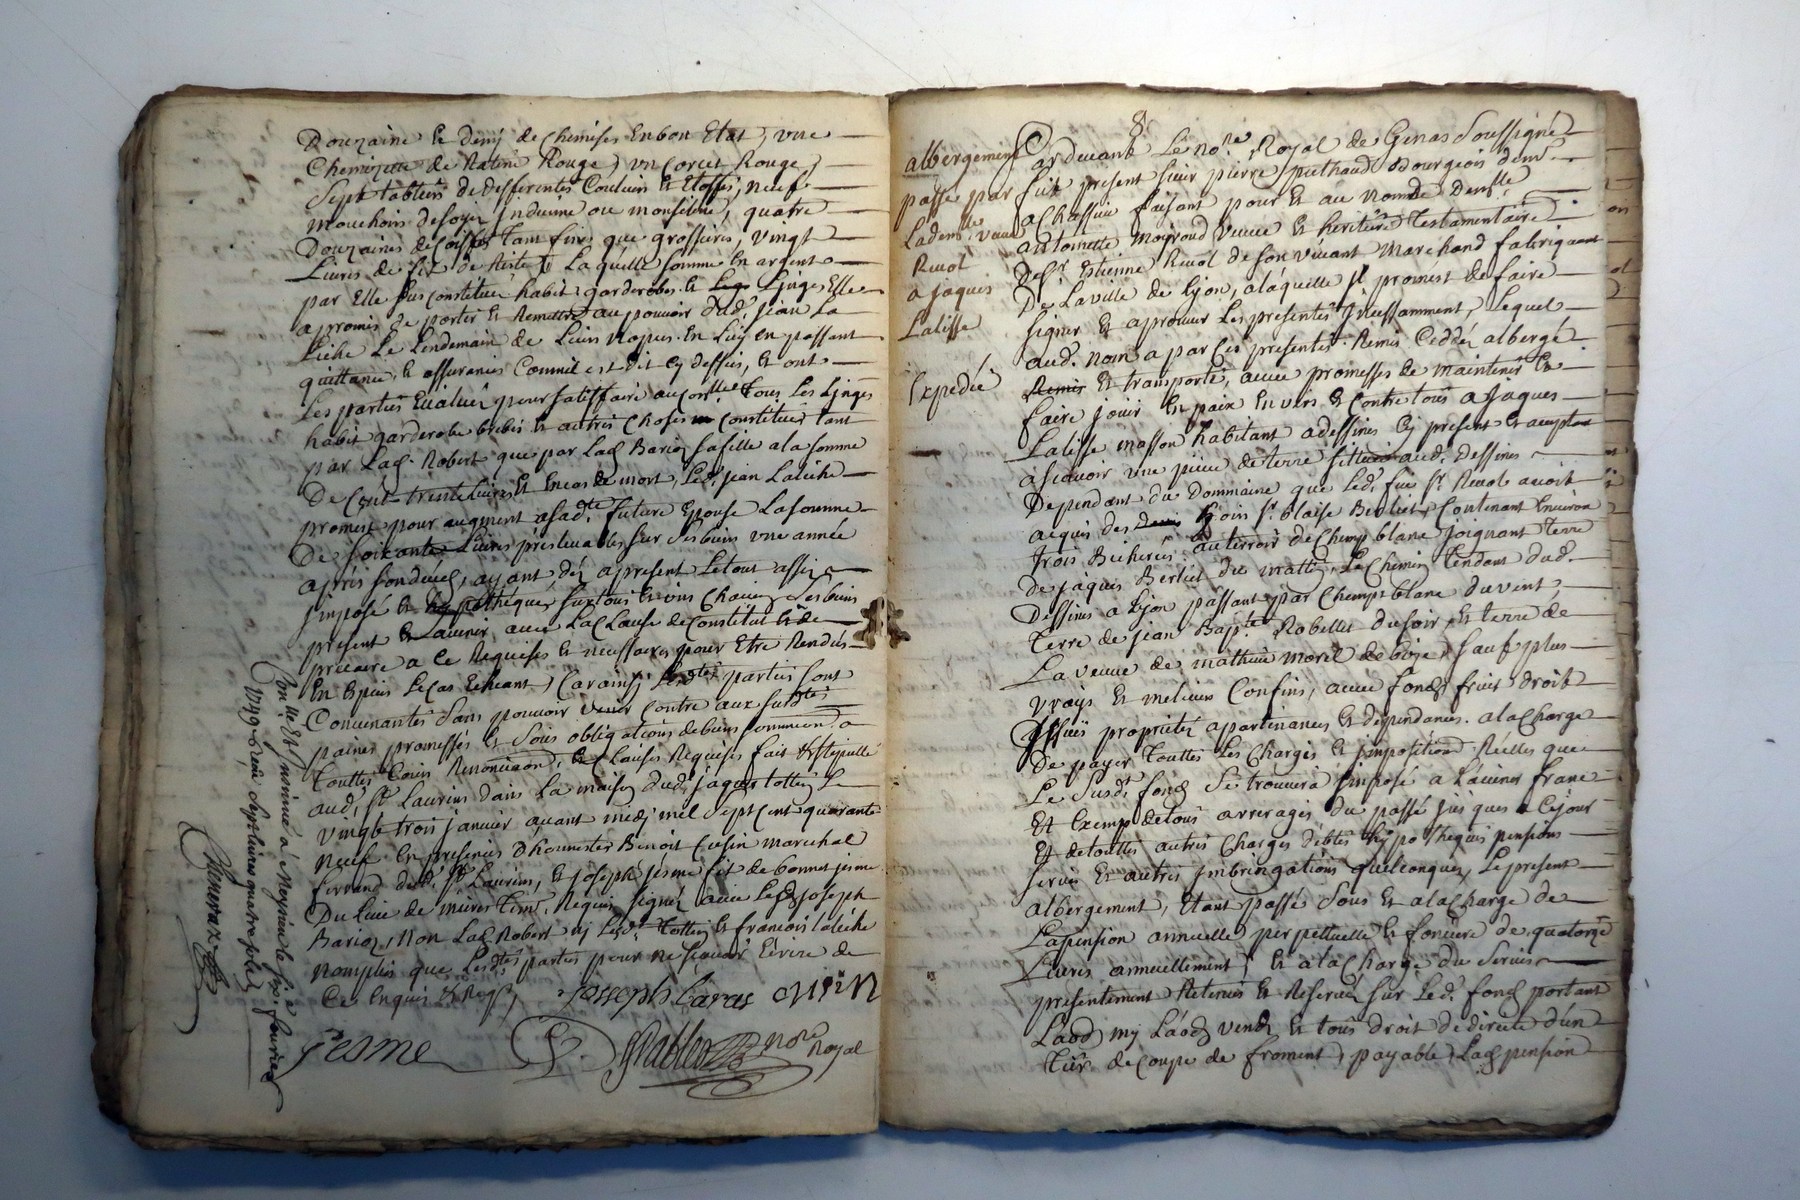 Douzaine & demy de Chemises En bon Etat, une
Chemizette de Ratine Rouge, un Corcet Rouge,
Sept tabliers de differentes Couleurs & Etoffes, neuf
mouchoirs de soye Indienne ou mousseline, quatre
Douzaines de Coiffes tant fines que grossieres, vingt
Livres de fil de Riste & Laquelle somme En argent
par Elle sus Constituée habits garderobes & Linges Elle
a promis de porter & Remettre au pouvoir dud. jean La
Liche Le Lendemain de Leurs Nopces En Luy En passant
quittance, & assurance Comme il est dit cy dessus, & ont
Les parties Evalué pour satisfaire au Tous Les Linges
habits garderobe brebis & autres Choses Constituées tant
par Lad. Robert que par Lad. Barioz sa fille a la somme
De Cent trente Livres Et En cas de mort, Led. jean Laliche
promest pour augment a sad.te future Epouse La somme
De soixante Livres prelevables sur ses biens une année
apres son decés, ayant déz apresent Le tout assis
jmposé & hypothequé sur tous & uns Chacuns ses biens
present & avenir avec La Clause de Constitut & de
precaire a ce Requises & necessaires pour Etre Rendües
En Espéces Le Cas Echeant, Car ainsy Lesd.tes parties sont
Convenantes sans pouvoir venir Contre aux susd.tes
paines promesses & sous obligations de biens soumission a
Touttes Cours Renonciaõn, & Clauses Requises fait & stipullé
aud. St. Laurins dans La maison dud. jaques tottier Le
vingt trois janvier avant midy mil sept cent quarante
neuf En presences d'honnestes Benoit Cusin marechal
ferrand dud. St. Laurins, & joseph jésme fils de bonnet jesme
Du Lieu de mures tem. Requis signés avec Led. joseph
Barioz, Non Lad. Robert ny Led. Tottier & francois laliche
non plus que Lesd.tes parties pour ne sçavoir Ecrire de
Ce Enquis & Req.s
josseph baras cusin
Jesme
Nore Royal
Con.llé Et insinué a Meyzieu le six fevrier
1749. Receu sept livres quatre sols
8
albergement
passé par
La dem.lle veuve
Ruol
a jaques
Lalisse
Expedié
Pardevant Le no.re Royal de Genas Soussigné
fut present sieur pierre Bourgeois dem.t
a Chassieu faisant pour Et au Nom de Dem.lle
antoinette moyroud veuve Et heritiere testamentaire
De S.r Estienne Ruol de son vivant Marchand fabriquant
De La ville de Lyon, a laquelle Il promest de faire
signer Et aprouver Les presentes Incessamment, Lequel
aud. nom a par Ces presentes Remis Ceddé, albergé
Remis Et transporté, avec promesses de maintenir &
faire jouir En paix Envers & Contre tous a jaques
Lalisse masson habitant a dessines Cy present & acceptant
a sçavoir une piece de terre scituée aud. Dessines
Dependant du Dommaine que Led. feu S.r Ruol avoit
acquis des hoirs S.r blaise Berliet, Contenant Environ
trois Bicherées au terroir de Champ blanc joignant terre
de jaques Berliet du matin, Le Chemin tendant dud.
Dessines a Lyon passant par Champt blanc du vent,
terre de jean Bap.te Robellet du soir, Et terre de
La veuve de mathieu morel de bize, sauf plus
vrays Et meilieurs Confins, avec fonds fruits droits
Issües proprietés apartenances Et dependances. a la Charge
De payer touttes Les Charges Et jmpositions Réelles que
Le susd. fond se trouvera jmposé a L'avenir franc
Et Exemp de tous arrerages du passé jusques a Ce jour
Et de touttes autres Charges debtes hypotheques pensions
servis Et autres jmbringations quelconques, Le present
albergement, Etant passé sous Et a la Charge de
La pension annuelle perpettuelle & fonciere de quatorze
Livres annuellement, & a la Charge du Service
presentement Retenu Et Reservé sur Led. fond portant
Laod, my Laod, vend, Et tous droit de directe d'un
tiers de Coupe de froment, payable, Lad. pension